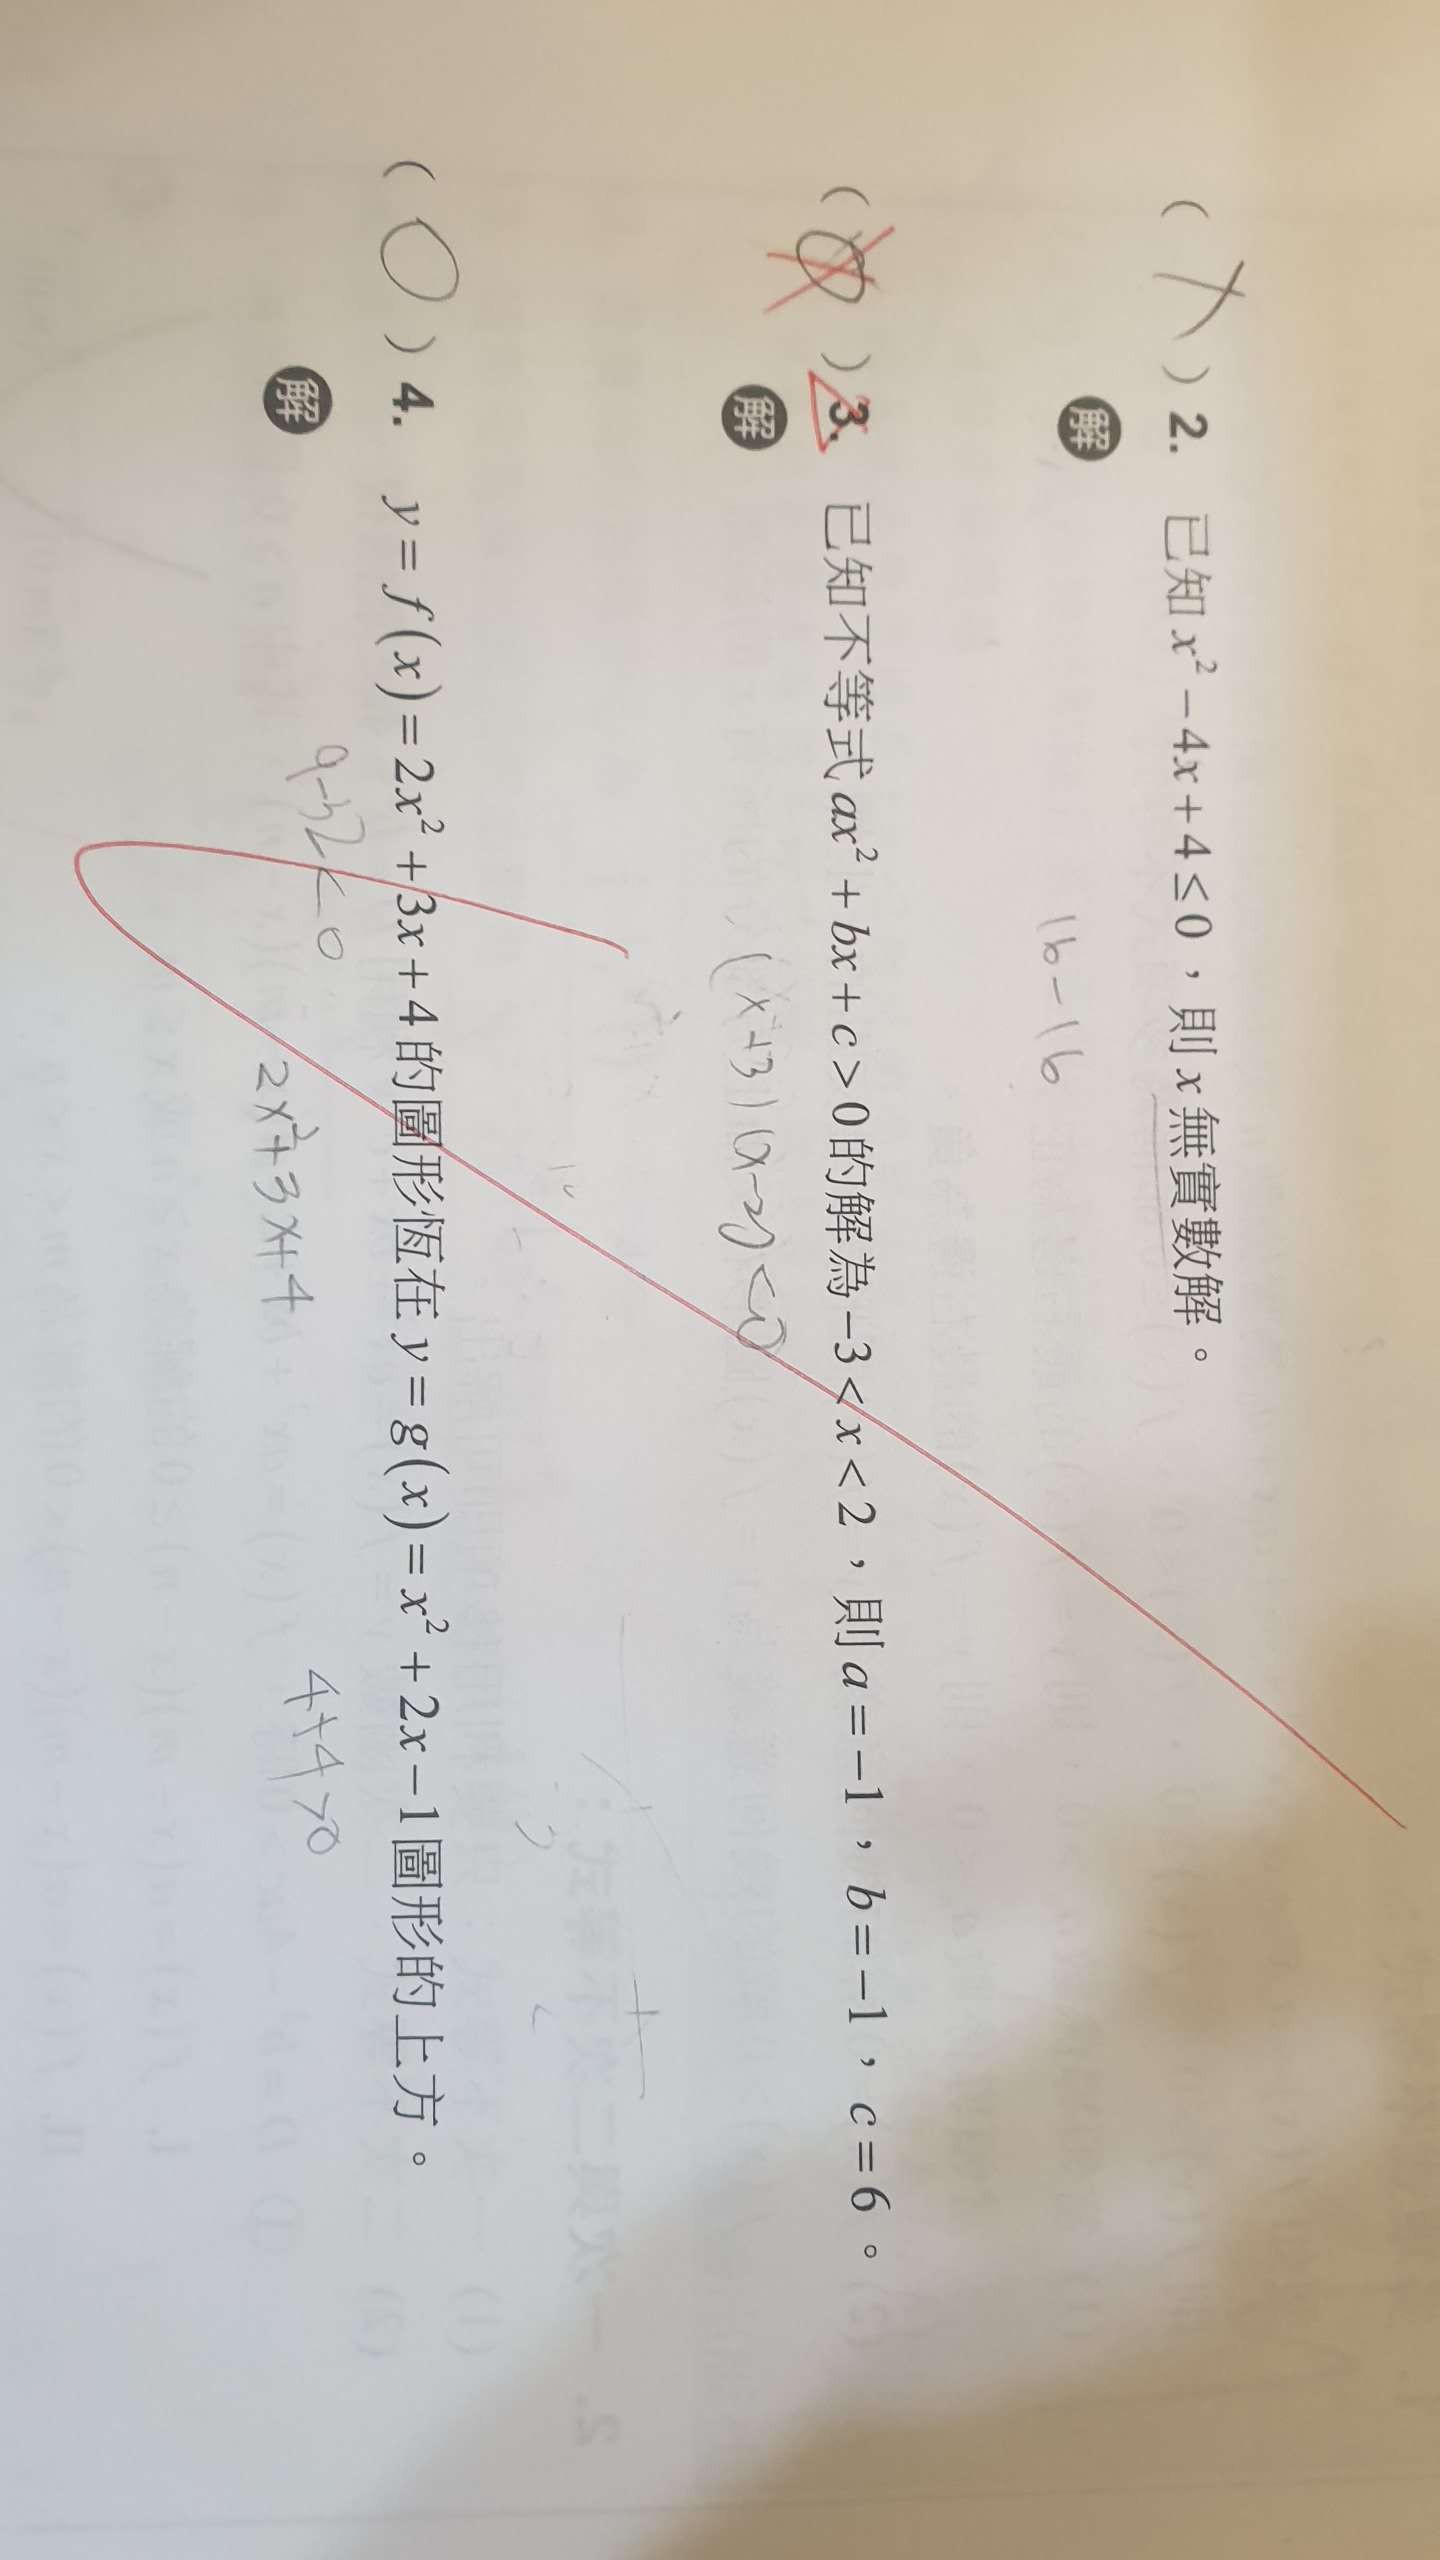 ( X ) 2. 已知 x² − 4x + 4 ≤ 0，則 x 無實數解。
解
16-16
( O ) 3. 已知不等式 ax² + bx + c > 0 的解為 −3 < x < 2，則 a = −1，b = −1，c = 6。
解
(x+3)(x-2)<0
( O ) 4. y = f(x) = 2x² + 3x + 4 的圖形恆在 y = g(x) = x² + 2x − 1 圖形的上方。
解
9-32<0 4+4>0
2x²+3x+4